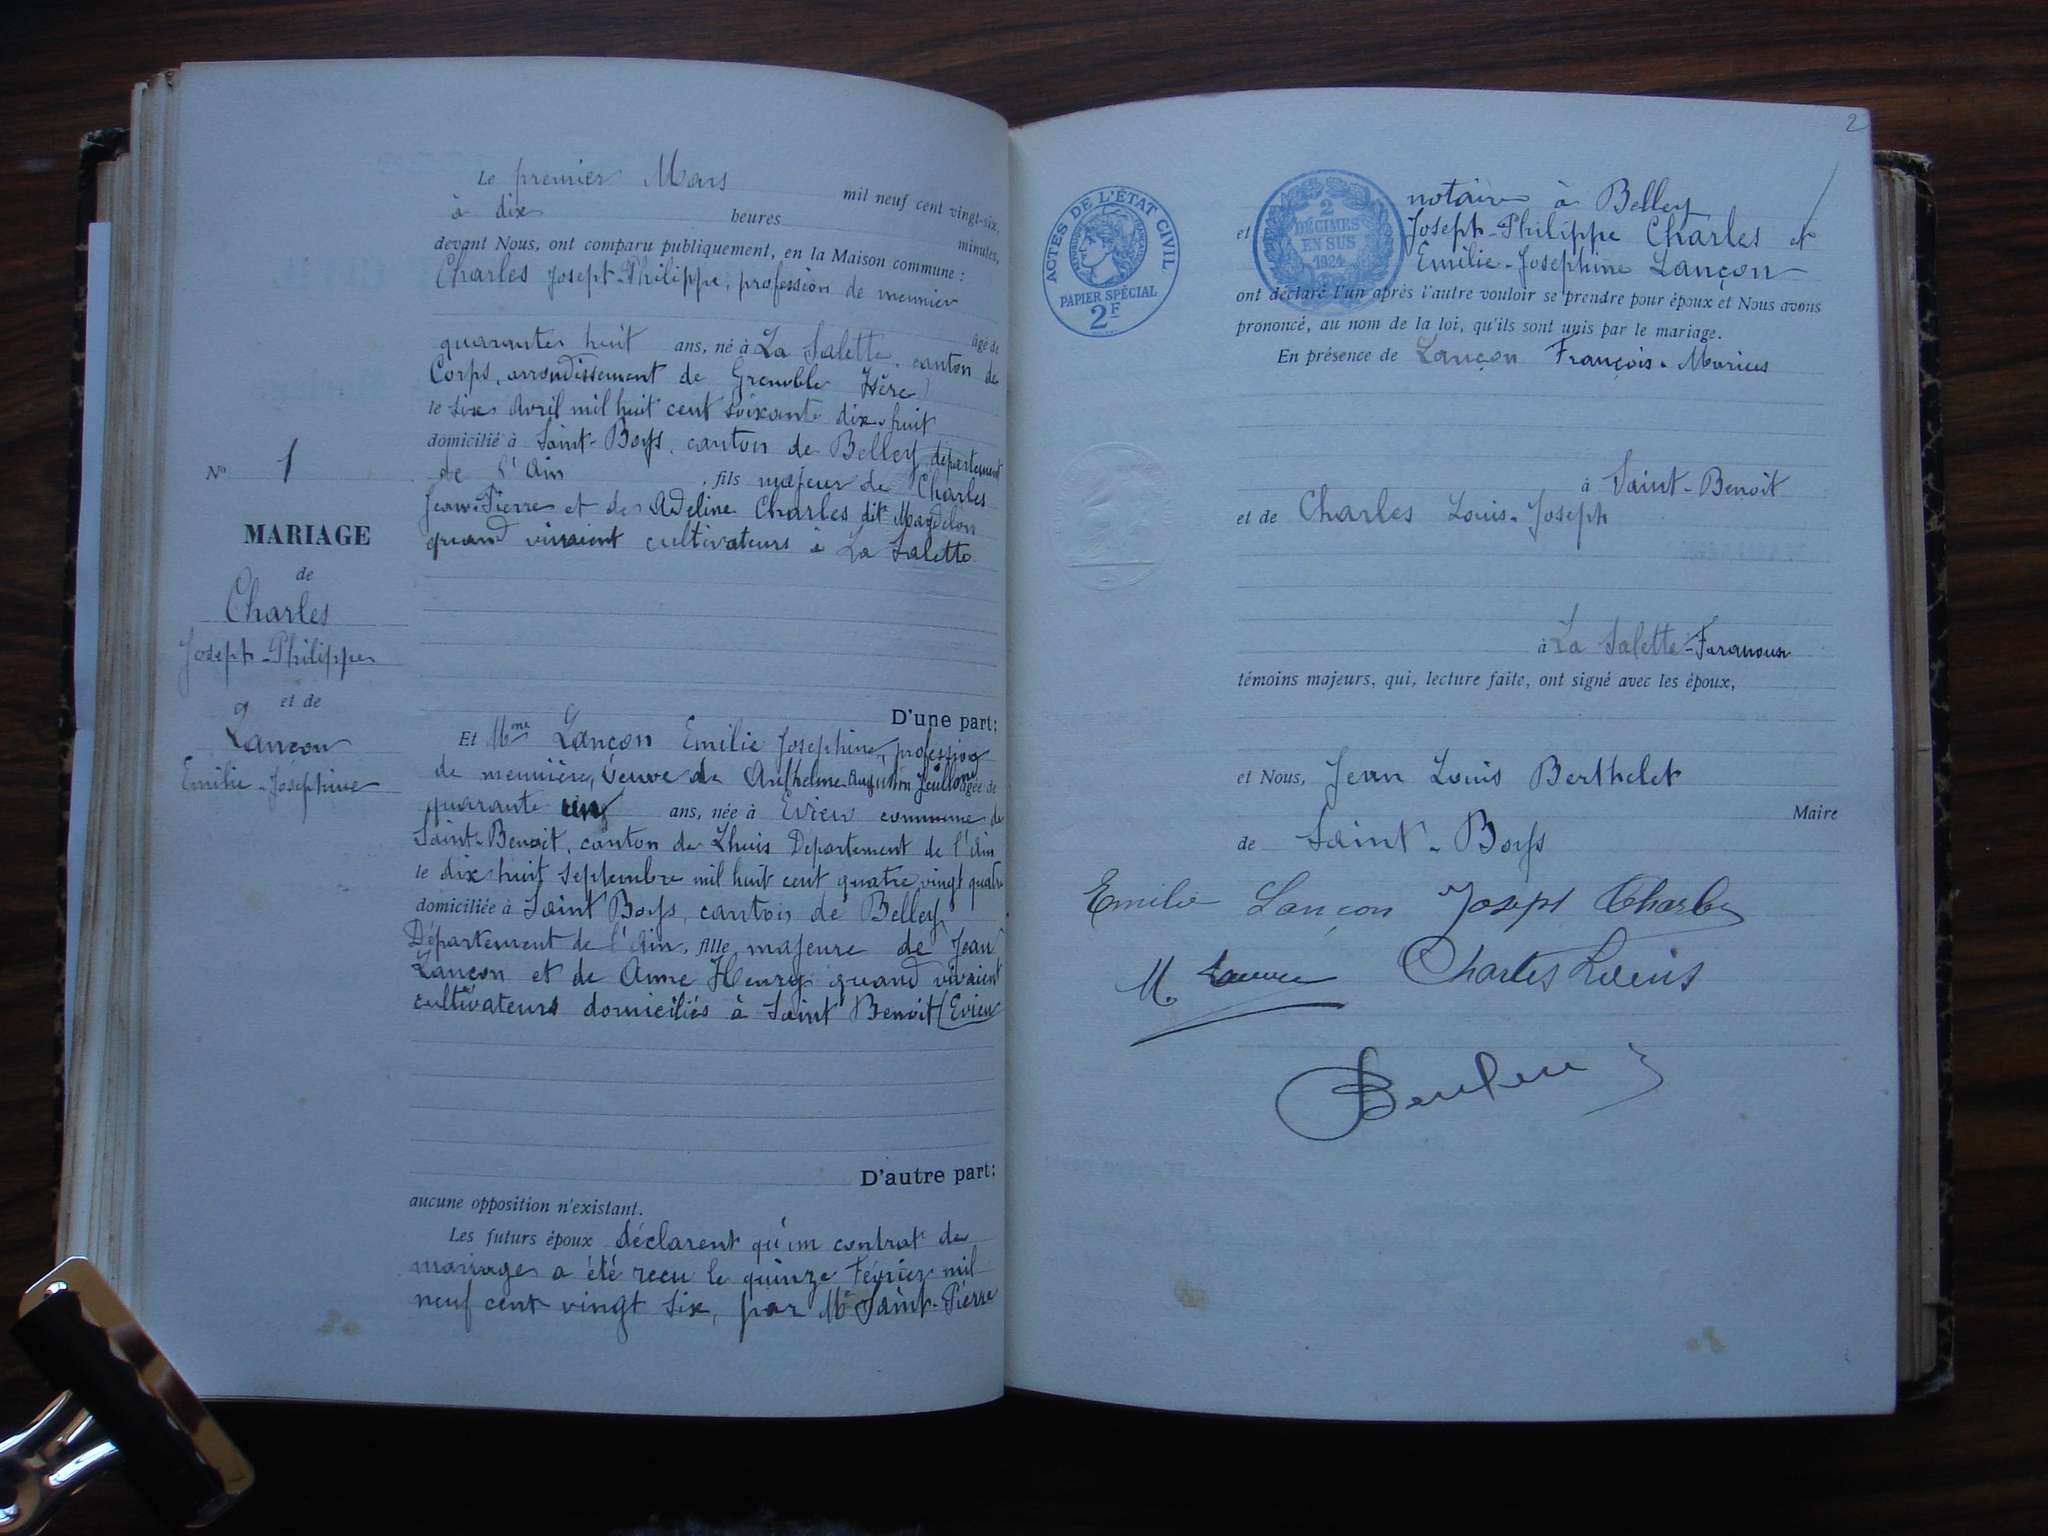 Le premier Mars mil neuf cent vingt-six,
à dix heures minutes,
devant Nous, ont comparu publiquement, en la Maison commune :
Charles Joseph-Philippe, profession de meunier
âgé de
quarante huit ans, né à La Salette, canton de
Corps, arrondissement de Grenoble Isère)
le six Avril mil huit cent soixante dix-huit
domicilié à Saint-Boys, canton de Belley, département
de l'Ain, fils majeur de Charles
Jean-Pierre et de Adeline Charles dit Magdelon
quand vivaient cultivateurs à La Salette
No 1
MARIAGE
de
Charles
Joseph-Philippe
et de
Lançon
Emilie-Joséphine
D'une part:
Et Mme Lançon Emilie Josephine, profession
de meunière, Veuve de Anthelme âgée de
quarante un ans, née à Evieu commune de
Saint-Benoit, canton de Lhuis Département de l'Ain
le dix huit Septembre mil huit cent quatre vingt quatre
domiciliée à Saint Boys, canton de Belley
Département de l'Ain, fille majeure de Jean
Lançon et de Anne Henry quand vivaient
cultivateurs domiciliés à Saint Benoit (Evieu
D'autre part:
aucune opposition n'existant.
Les futurs époux déclarent qu'un contrat de
mariage a été recu le quinze Février mil
neuf cent vingt six, par Me Saint-Pierre
2
ACTES DE L'ÉTAT CIVIL
PAPIER SPÉCIAL
2F
2
DÉCIMES
EN SUS
1924
notaire à Belley
et Joseph-Philippe Charles et
Emilie-Josephine Lançon
ont déclaré l'un après l'autre vouloir se prendre pour époux et Nous avons
prononcé, au nom de la loi, qu'ils sont unis par le mariage.
En présence de Lançon François-Marius
à Saint-Benoit
et de Charles Louis-Joseph
à La Salette-
témoins majeurs, qui, lecture faite, ont signé avec les époux,
et Nous, Jean Louis Berthelet
Maire
de Saint-Boys
Emilie Lançon Joseph Charles
M. Charles Louis